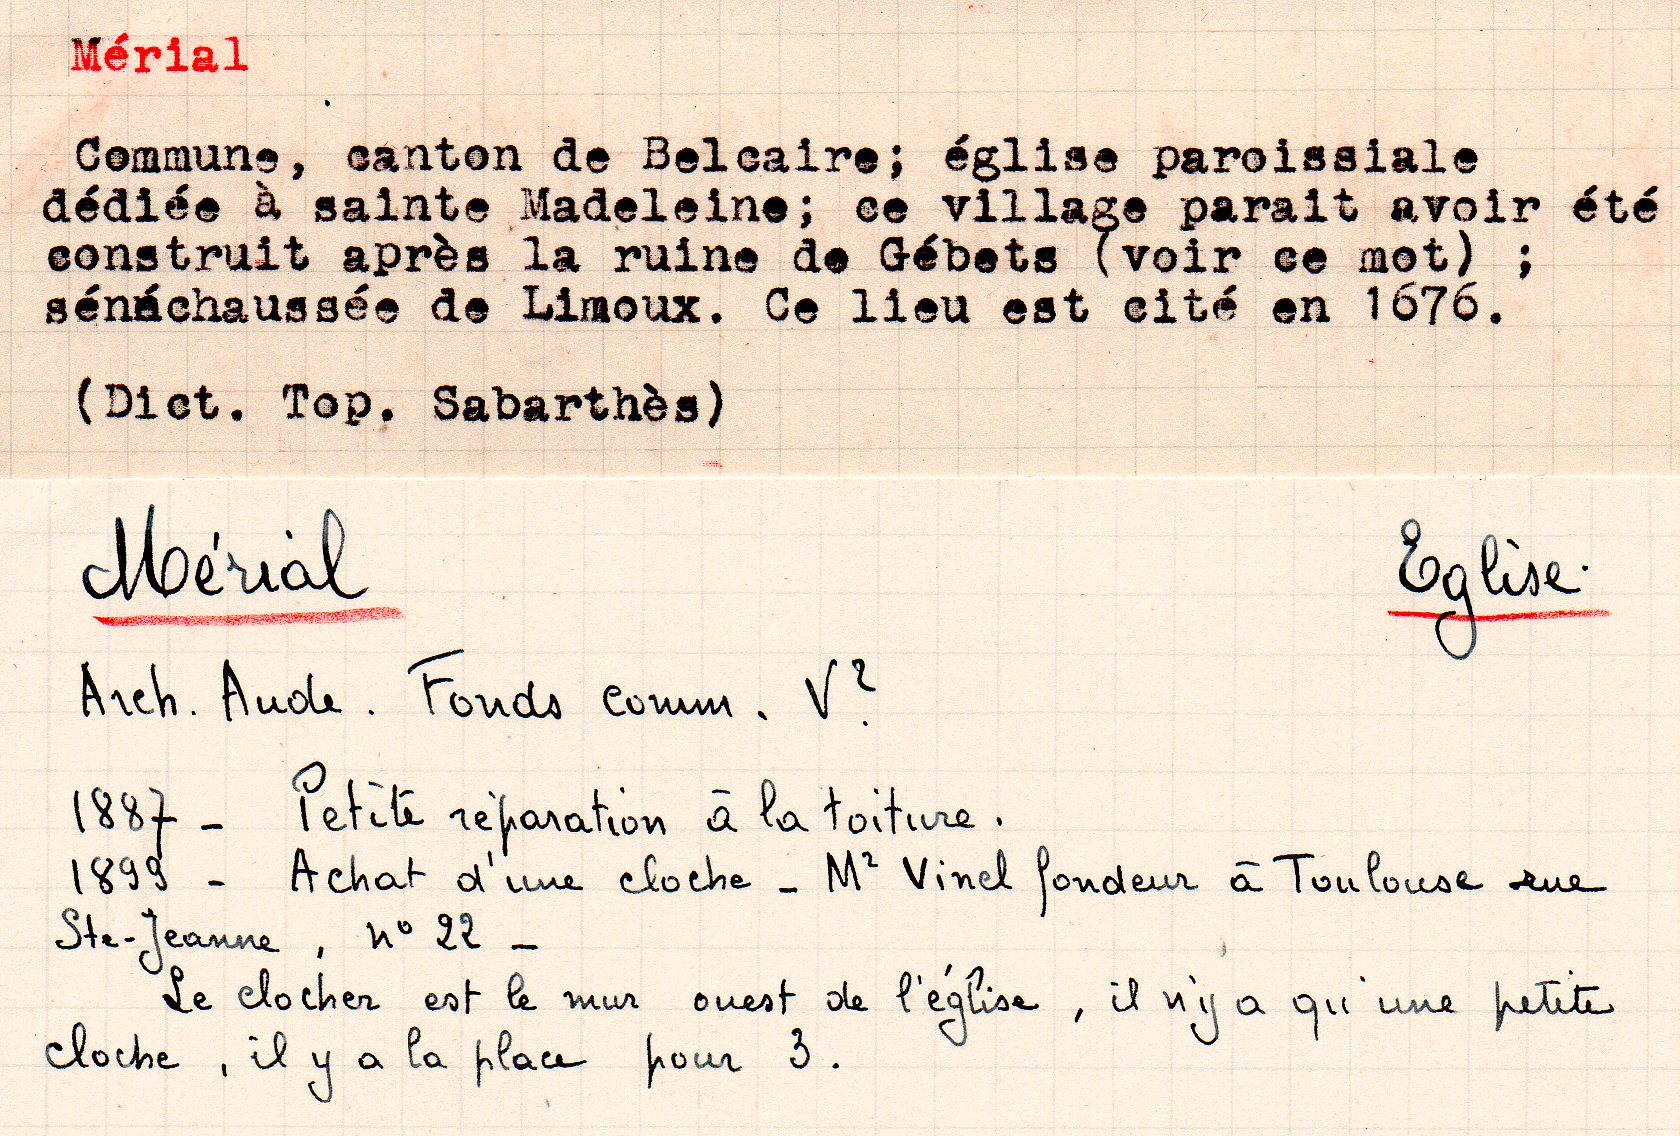 Mérial
Commune, canton de Belcaire; église paroissiale
dédiée à sainte Madeleine; ce village parait avoir été
construit après la ruine de Gébets (voir ce mot) ;
sénéchaussée de Limoux. Ce lieu est cité en 1676.
(Dict. Top. Sabarthès)
Mérial Eglise.
Arch. Aude. Fonds comm. V?
1887 - Petite réparation à la toiture.
1899 - Achat d'une cloche - Mr Vinel fondeur à Toulouse rue
Ste-Jeanne, n° 22 -
Le clocher est le mur ouest de l'église, il n'y a qu'une petite
cloche, il y a la place pour 3.